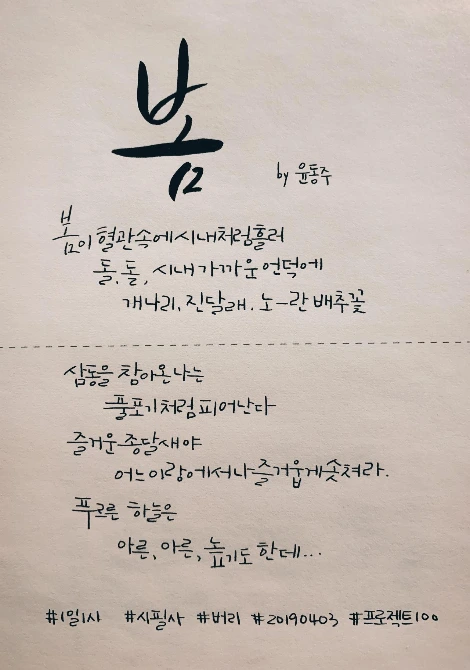 봄
by 윤동주
봄이 혈관속에 시내처럼 흘러
돌, 돌, 시내 가까운 언덕에
개나리, 진달래, 노-란 배추꽃
삼동을 참아온 나는
풀포기처럼 피어난다
즐거운 종달새야
어느 이랑에서나 즐거웁게 솟쳐라.
푸르른 하늘은
아른, 아른, 높기도 한데...
#1일1시 #시필사 #버리 #20190403 #프로젝트100